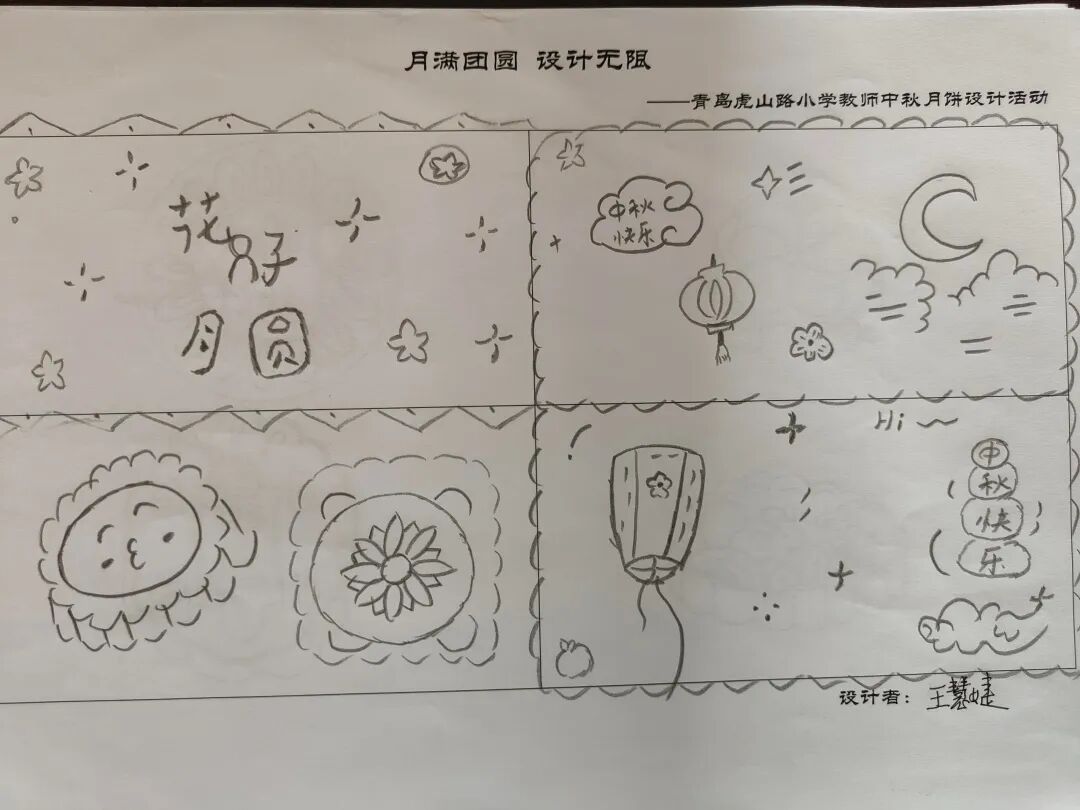 月满团圆 设计无限
——青岛虎山路小学教师中秋月饼设计活动
花好
月圆
中秋
快乐
Hi
中
秋
快
乐
设计者：王慧婕